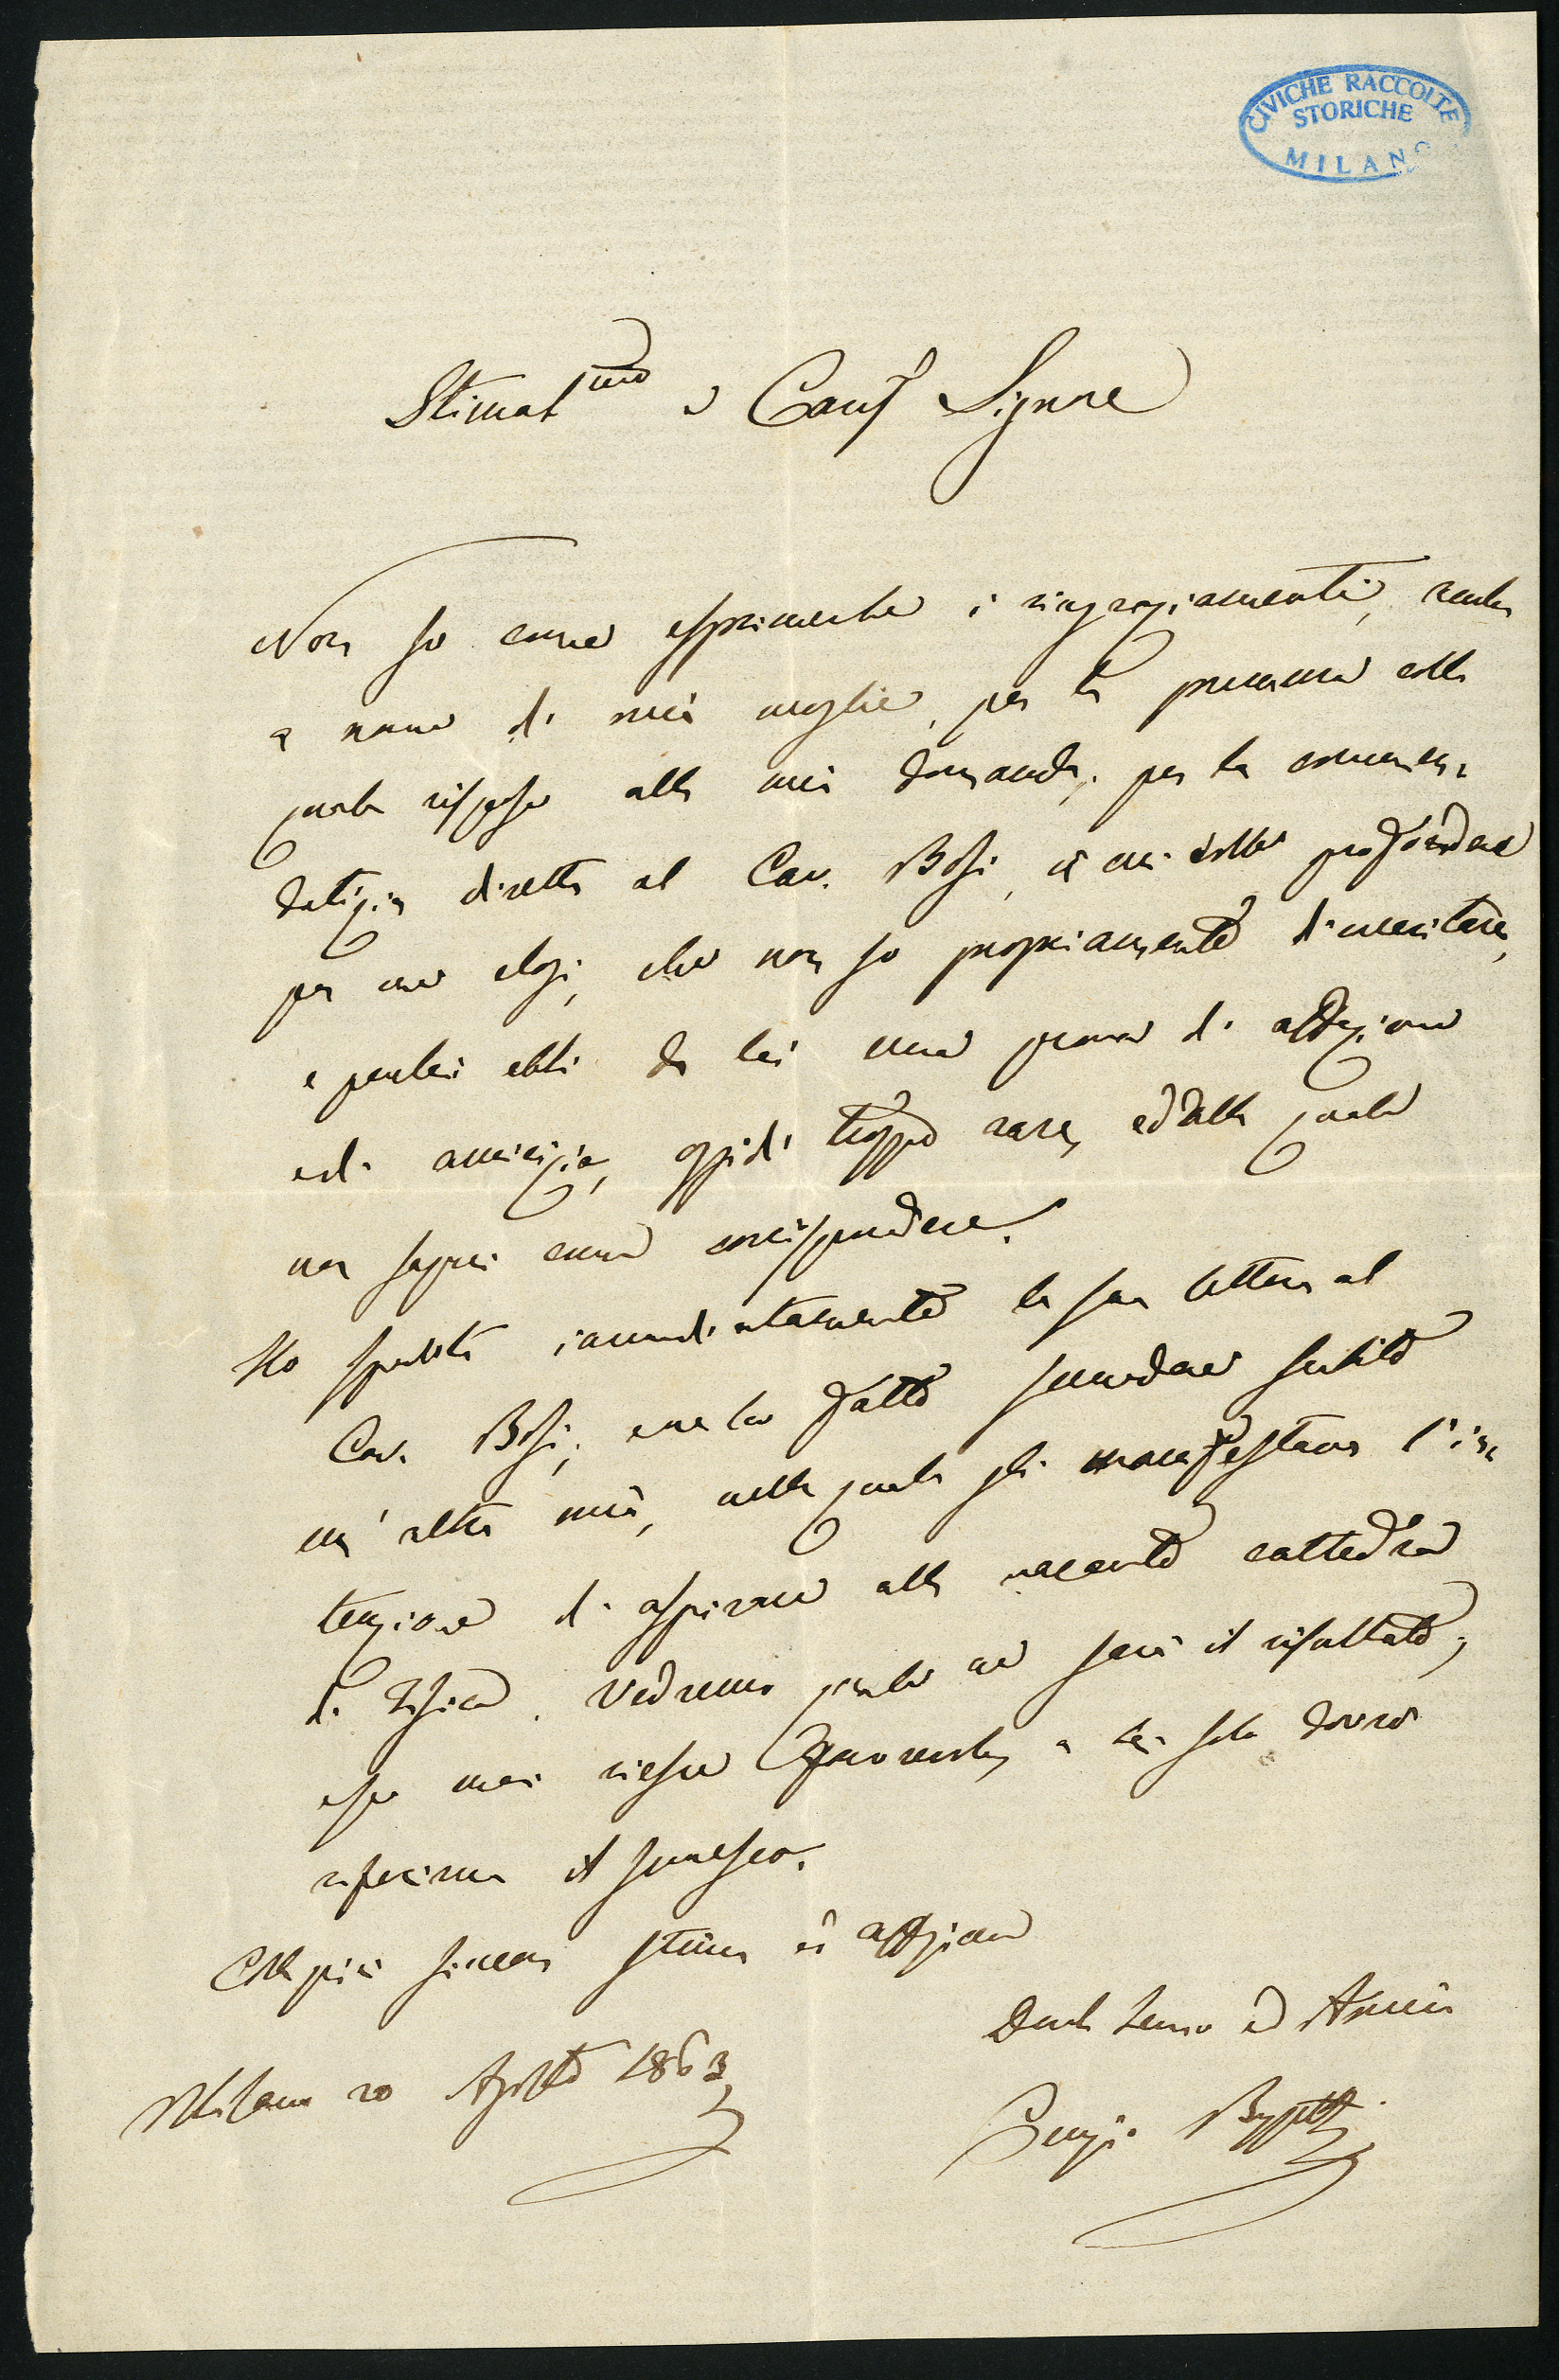 CIVICHE RACCOLTE
STORICHE
MILANO
Stimat.mo e Cariss. Signore
Non so come esprimerle i ringraziamenti, anche
a nome di mia moglie, per la premura colla
quale rispose alla mia domanda; per la commen-
datizia diretta al Cav. Bosi, in cui volle profondere
per me elogi, che non so propriamente di meritare,
e perchè ebbi da lei una prova di affezione
e di amicizia, oggidì troppo rara, ed alla quale
non saprei come corrispondere.
Ho spedito immediatamente la sua lettera al
Cav. Bosi, e ne ho fatto succedere subito
un'altra mia, nella quale gli manifestava l'in-
tenzione di aspirare alla vacante cattedra
di Fisica. Vedremo quale ne sarà il risultato;
e se mai riesce favorevole, a lei solo dovrò
riferirne il successo.
Colla più sincera stima ed affezione
Dev.o Servo ed Amico
Milano 20 Agosto 1863